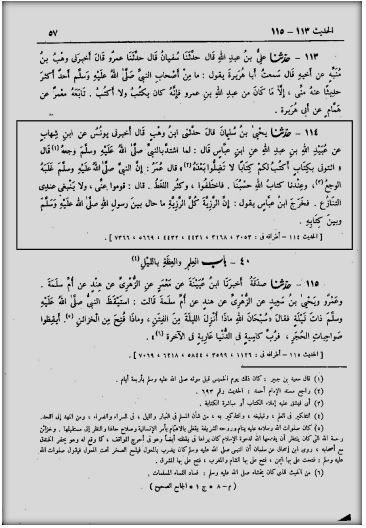 الحديث ١١٣ - ١١٥
٥٧
١١٣ - حدثنا عليُّ بن عبدِ اللهِ قال حدَّثنا سفيانُ قال حدَّثنا عمرٌو قال أخبرني وَهْبُ بنُ
مُنَبِّهٍ عن أخيهِ قال سمعتُ أبا هُرَيرةَ يقول : ما مِنْ أصحابِ النبيِّ صَلَّى اللهُ عَلَيْهِ وَسَلَّم أحدٌ أكثرَ
حديثًا عنهُ منِّي ، إلَّا ما كانَ من عبدِ اللهِ بنِ عمرٍو فإنَّهُ كان يكتُبُ ولا أكتُبُ . تابَعَهُ معمرٌ عن
همَّامٍ عن أبي هُريرةَ .
١١٤ - حدثنا يحيى بنُ سُليمانَ قال حدَّثني ابنُ وَهبٍ قال أخبرني يونُسُ عن ابنِ شِهابٍ
عن عُبيدِ اللهِ بنِ عبدِ اللهِ عنِ ابنِ عبَّاسٍ قال : لما اشتدَّ بالنبيِّ صَلَّى اللهُ عَلَيْهِ وَسَلَّم وجعهُ (١) قال
« ائتوني بكتابٍ أكتُبْ لكم كتابًا لا تَضِلُّوا بعدَهُ » (٢) قال عُمرُ : إنَّ النبيَّ صَلَّى اللهُ عَلَيْهِ وَسَلَّم غلبَهُ
الوجعُ (٣)، وعندَنا كتابُ اللهِ حَسْبُنا . فاختلفوا ، وكثُر اللَّغَطُ . قال : قوموا عنِّي ، ولا ينبغي عندي
التنازُعُ . فخرَجَ ابنُ عباسٍ يقول : إنَّ الرَّزِيَّةَ كلَّ الرَّزِيَّةِ ما حالَ بينَ رسولِ اللهِ صَلَّى اللهُ عَلَيْهِ وَسَلَّم
وبينَ كتابِهِ .
[ الحديث ١١٤ - أطرافه في : ٣٠٥٣ ، ٣١٦٨ ، ٤٤٣١ ، ٤٤٣٢ ، ٥٦٦٩ ، ٧٣٦٦ ] .
٤٠ - باب العِلمِ والعِظَةِ بالليلِ (٤)
١١٥ - حدثنا صدَقةُ أخبرَنا ابنُ عُيَيْنةَ عن مَعْمَرٍ عنِ الزُّهْريِّ عن هندٍ عن أمِّ سلَمةَ .
وعمرٍو ويحيى بنِ سعيدٍ عن الزُّهريِّ عن هندٍ عن أمِّ سلمةَ قالت : استيْقَظَ النبيُّ صَلَّى اللهُ عَلَيْهِ
وَسَلَّم ذاتَ ليلةٍ فقال «سُبْحانَ اللهِ ماذا أُنزِلَ الليلةَ مِنَ الفِتَنِ ، وماذا فُتِحَ مِنَ الخزائنِ (٥) . أيقظوا
صَواحِباتِ الحُجَرِ ، فرُبَّ كاسيةٍ في الدُّنيا عاريةٍ في الآخرةِ » (٦) .
[ الحديث ١١٥ - أطرافه في : ١١٢٦ ، ٣٥٩٩ ، ٥٨٤٤ ، ٦٢١٨ ، ٧٠٦٩ ] .
(١) قال سعيد بن جبير : كان ذلك يوم الخميس قبل موته صلى الله عليه وسلم بأربعة أيام .
(٢) راجع مسند الإمام أحمد : الحديث رقم ٦٩٣ .
(٣) أي فيشق عليه إملاء الكتاب أو مباشرة الكتابة .
(٦) من الحديث الذي كان يخشاه صلى الله عليه وسلم : فساد النساء المسلمات .
( م - ٨ * ج ١ * الجامع الصحيح )